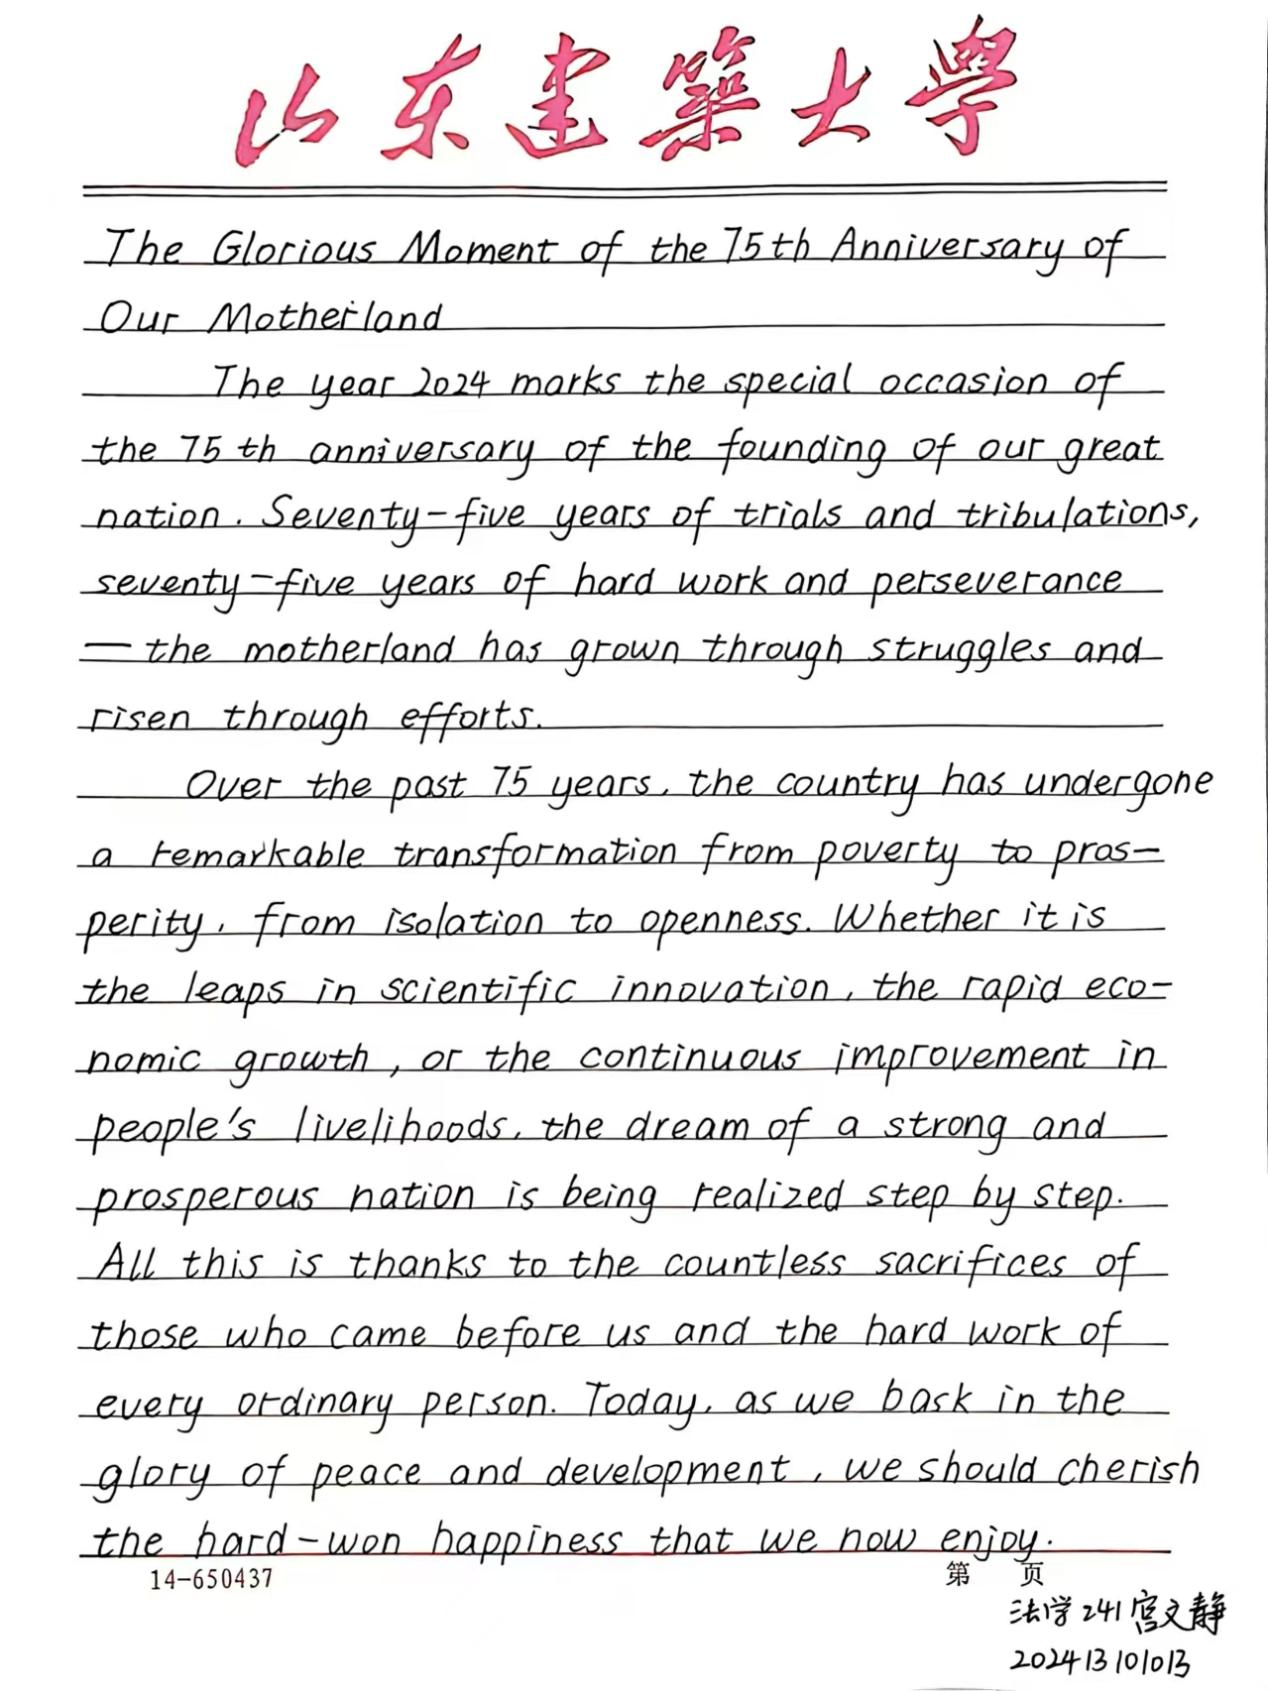 山东建築大學
The Glorious Moment of the 75th Anniversary of
Our Motherland
The year 2024 marks the special occasion of
the 75th anniversary of the founding of our great
nation. Seventy-five years of trials and tribulations,
seventy-five years of hard work and perseverance
— the motherland has grown through struggles and
risen through efforts.
Over the past 75 years, the country has undergone
a remarkable transformation from poverty to pros-
perity, from isolation to openness. Whether it is
the leaps in scientific innovation, the rapid eco-
nomic growth, or the continuous improvement in
people's livelihoods, the dream of a strong and
prosperous nation is being realized step by step.
All this is thanks to the countless sacrifices of
those who came before us and the hard work of
every ordinary person. Today, as we bask in the
glory of peace and development, we should cherish
the hard-won happiness that we now enjoy.
14-650437 第 页
法学241宫文静
202413101013